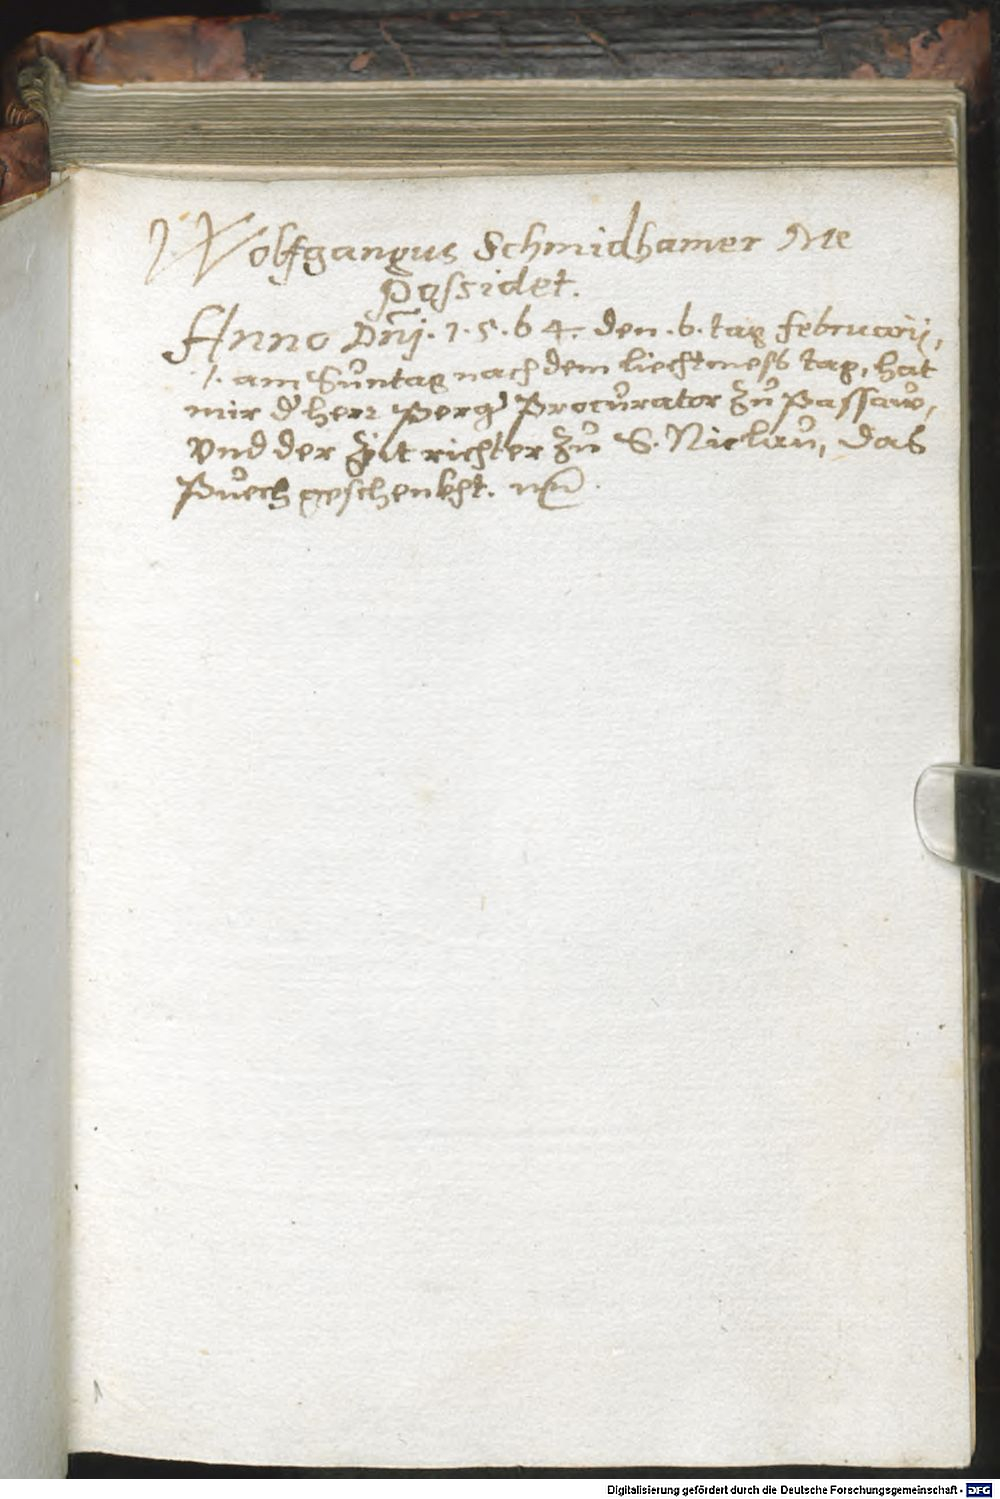 Wolfgangus Schmidhamer Me
Possidet.
Anno Dñj. 1.5.6 4. den .6. tag februarij,
/. am Sůntag nach dem liechtmess tag, hat
mir d' herr Perg' Procůrator Zů Passaw,
Vnd der Zeit richter Zů S. Niclaů, das
Půech geschenkht.
1
Digitalisierung gefördert durch die Deutsche Forschungsgemeinschaft - DFG